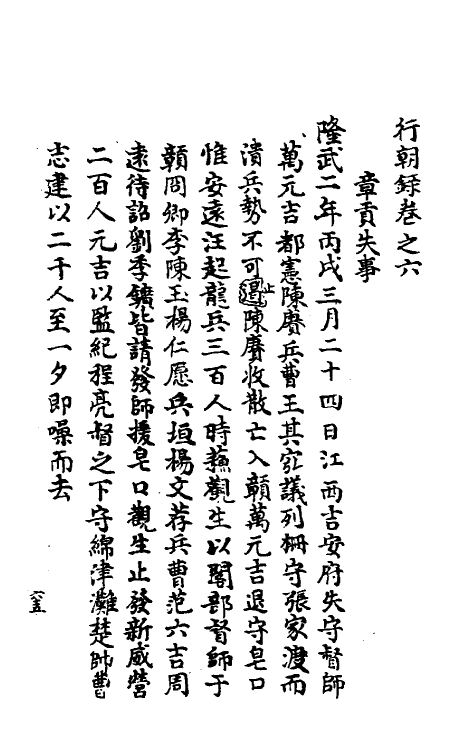 行朝錄卷之六
章貢失事
隆武二年丙戌三月二十四日江西吉安府失守督師
萬元吉都憲陳賡兵曹王其宖議列柵守張家渡而
潰兵勢不可遏止陳賡收散亡入贑萬元吉退守皂口
惟安遠汪起龍兵三百人時蘇觀生以閣部督師于
贑同卿李陳玉楊仁愿兵垣楊文荐兵曹范六吉周
遠待詔劉季鑛皆請發師援皂口觀生止發新威營
二百人元吉以監紀程亮督之下守綿津灘楚帥曹
志建以二千人至一夕即噪而去
六五